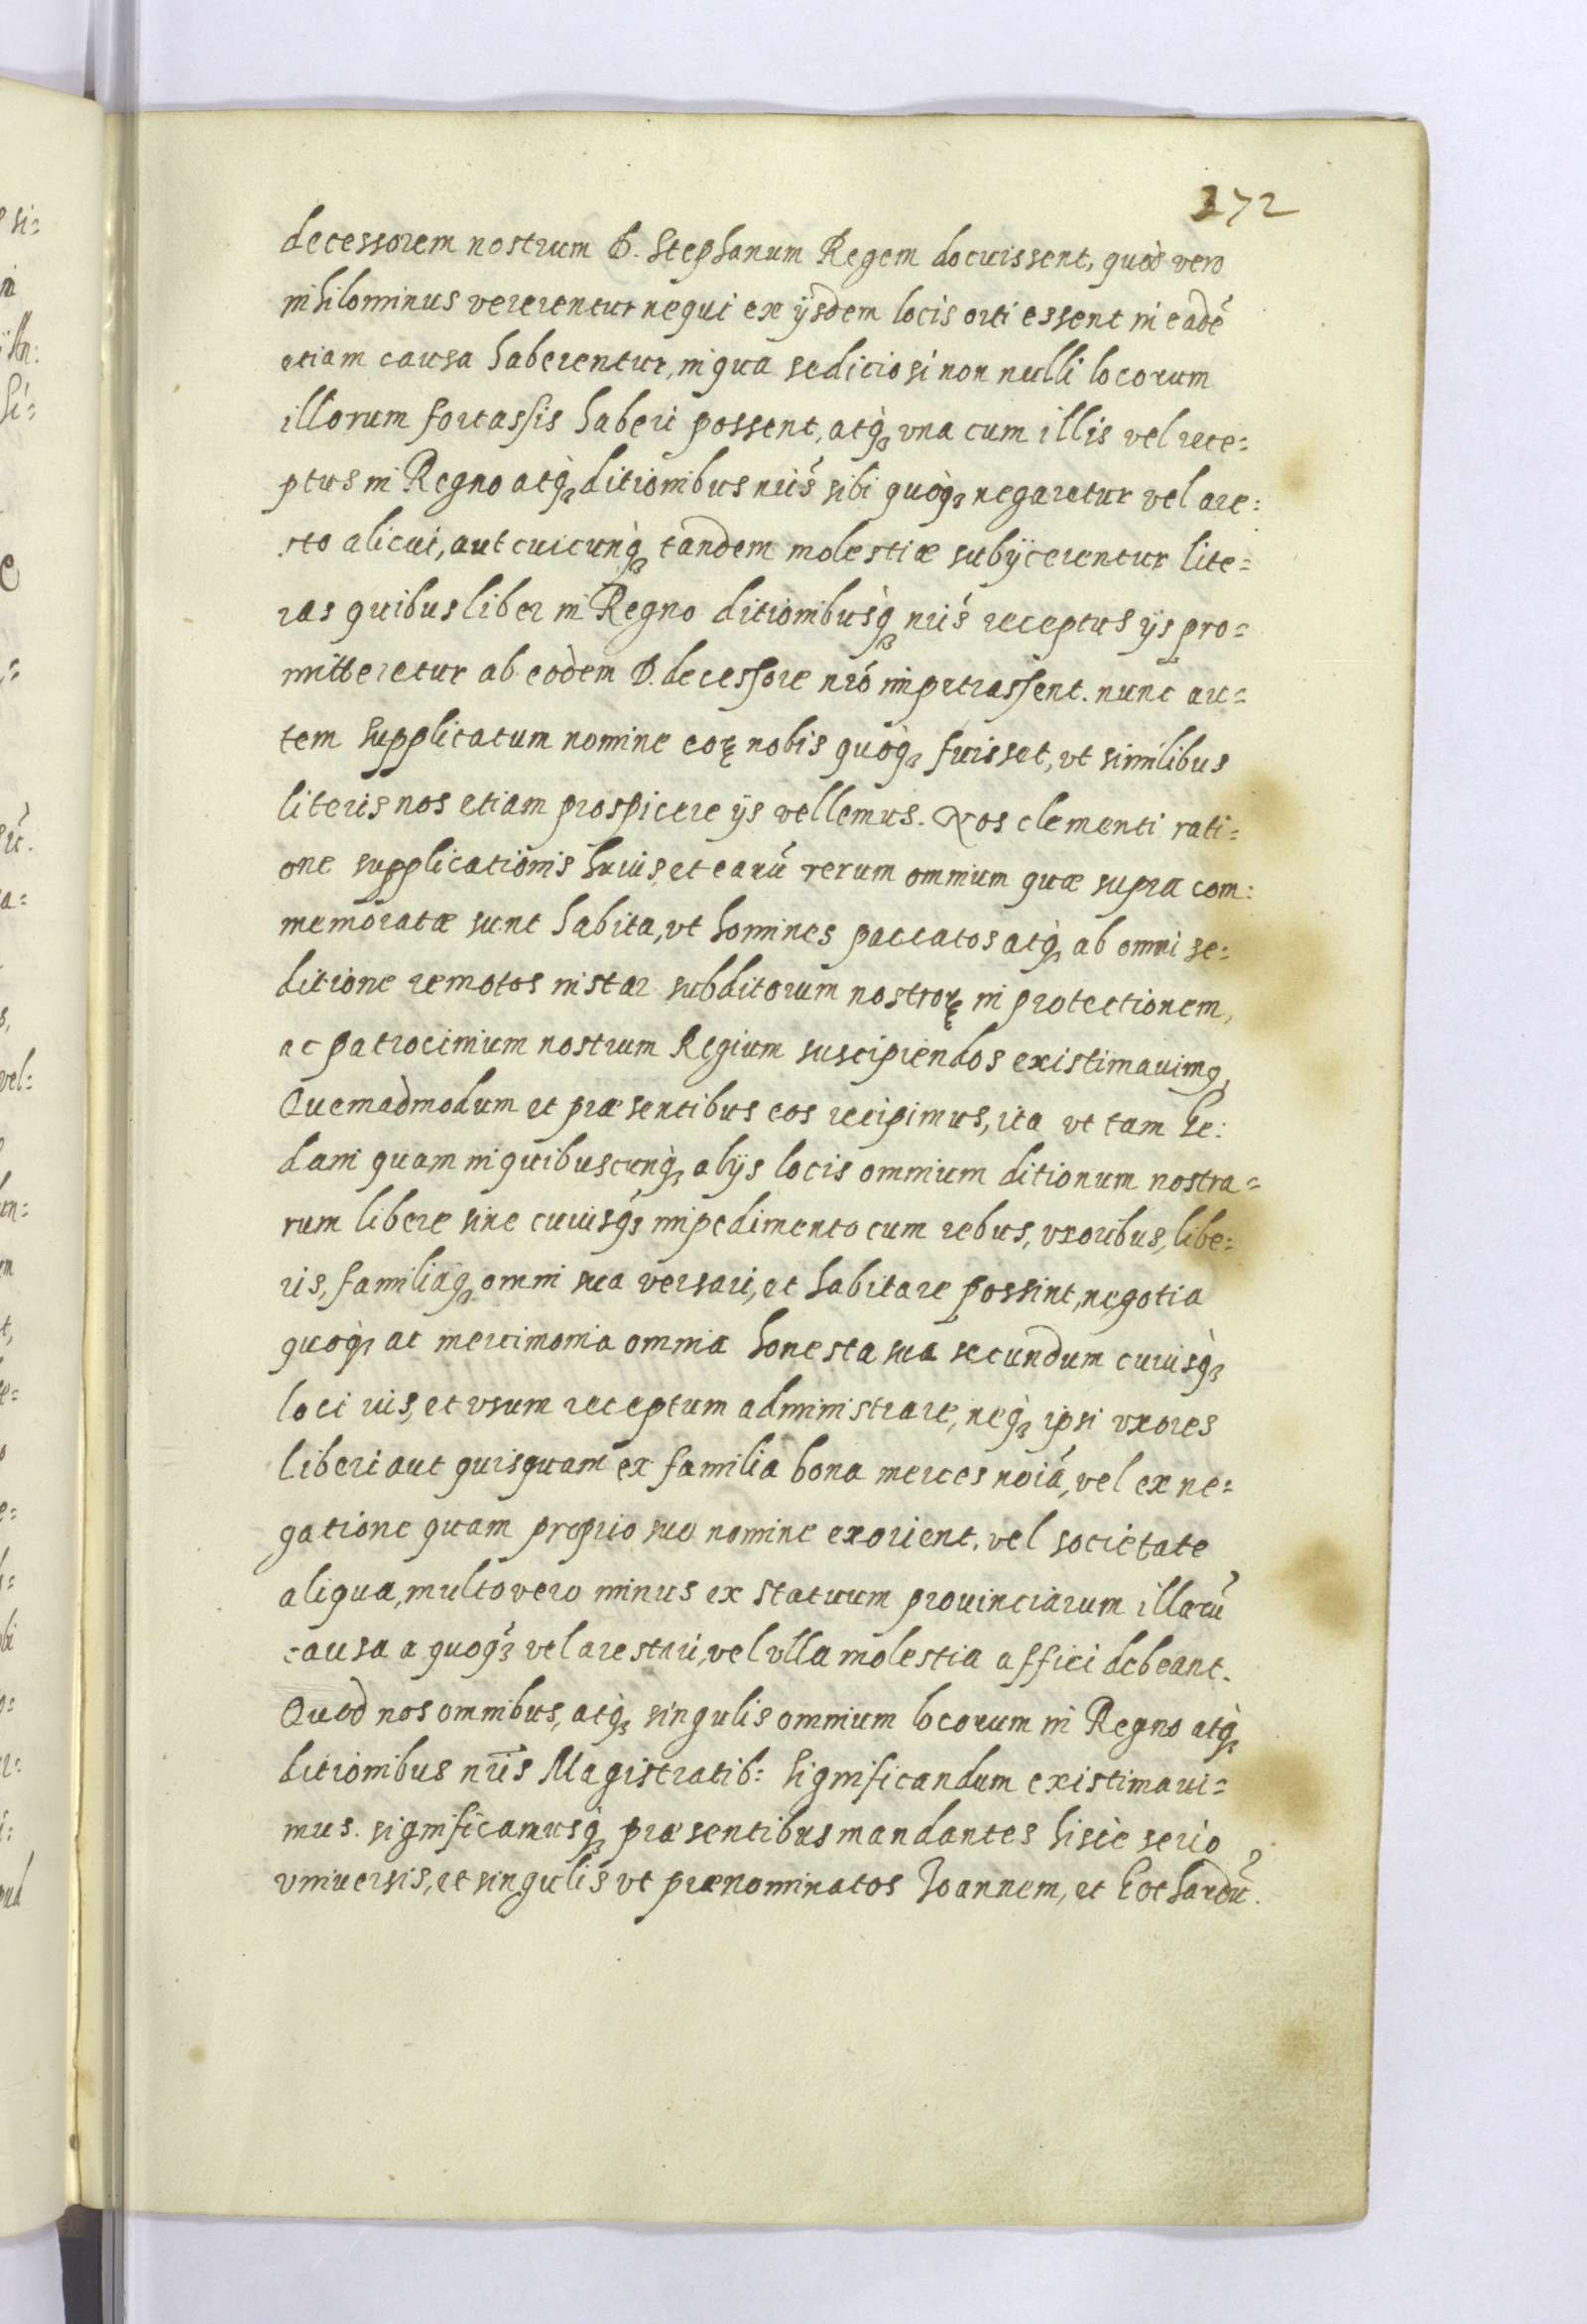 272
decessorem nostrum D. Stephanum Regem docuissent, quòd vero
nihilominus vererentur ne qui ex ijsdem locis orti essent in eadē
etiam causa haberentur, in qua sediciosi non nulli locorum
illorum fortassis haberi possent, atq̀ꝫ vna cum illis vel rece=
ptus in Regno atq̀ꝫ ditionibus nr̄is sibi quòqꝫ negaretur vel are=
sto alicui, aut cuicunq̀ꝫ tandem molestiæ subijcerentur lite=
ras quibus liber in Regno ditionibusq̀ꝫ nr̄is receptus ijs pro=
mitteretur ab eodem D. decessore nr̄o impetrassent. nunc au=
tem supplicatum nomine eoꝝ nobis quòqꝫ fuisset, vt similibus
literis nos etiam prospicere ijs vellemus. Nos clementi rati=
one supplicationis huius, et earū rerum omnium quæ supra com=
memoratæ sunt habita, vt homines paccatos atq̀ꝫ ab omni se=
ditione remotos instar subditorum nostroꝝ in protectionem,
ac patrocinium nostrum Regium suscipiendos existimauimꝯ,
Quemadmodum et præsentibus eos recipimus, ita vt tam Ge=
dani quam in quibuscunq̀ꝫ alijs locis omnium ditionum nostra=
rum libere sine cuiusq̀ꝫ impedimento cum rebus, vxoribus, libe=
ris, familiaq̀ꝫ omni sua versari, et habitare possint, negotia
quoq̀ꝫ ac mercimonia omnia honesta sua secundum cuiusq̀ꝫ
loci ius, et vsum receptum administrare, neq̀ꝫ ipsi vxores
liberi aut quisquam ex familia bona merces noīa, vel ex ne=
gatione quam proprio suo nomine exorient. vel societate
aliqua, multo vero minus ex statuum prouinciarum illarū
causa a quoq̀ꝫ vel arestari, vel vlla molestia affici debeant.
Quod nos omnibus, atq̀ꝫ singulis omnium locorum in Regno atq̀ꝫ
ditionibus nr̄is Magistratib= significandum existimaui=
mus. significamusq̀ꝫ præsentibus mandantes hisce serio
vniuersis, et singulis vt prænominatos Joannem, et Gothardū.